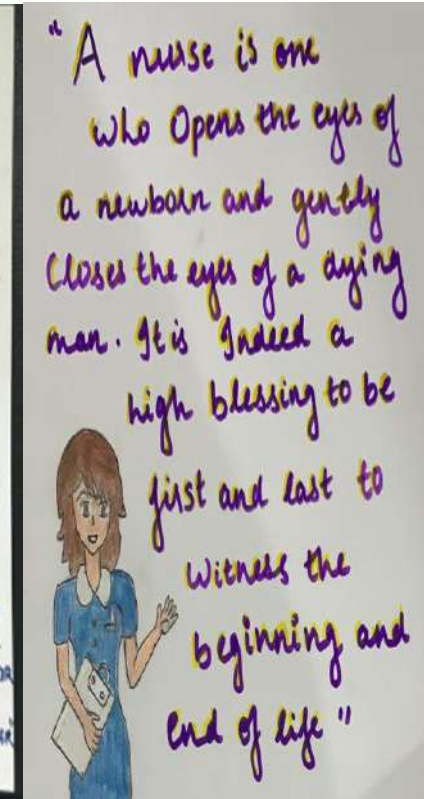 "A nurse is one
who Opens the eyes of
a newborn and gently
Closes the eyes of a dying
man. It is Indeed a
high blessing to be
first and last to
Witness the
beginning and
End of life"